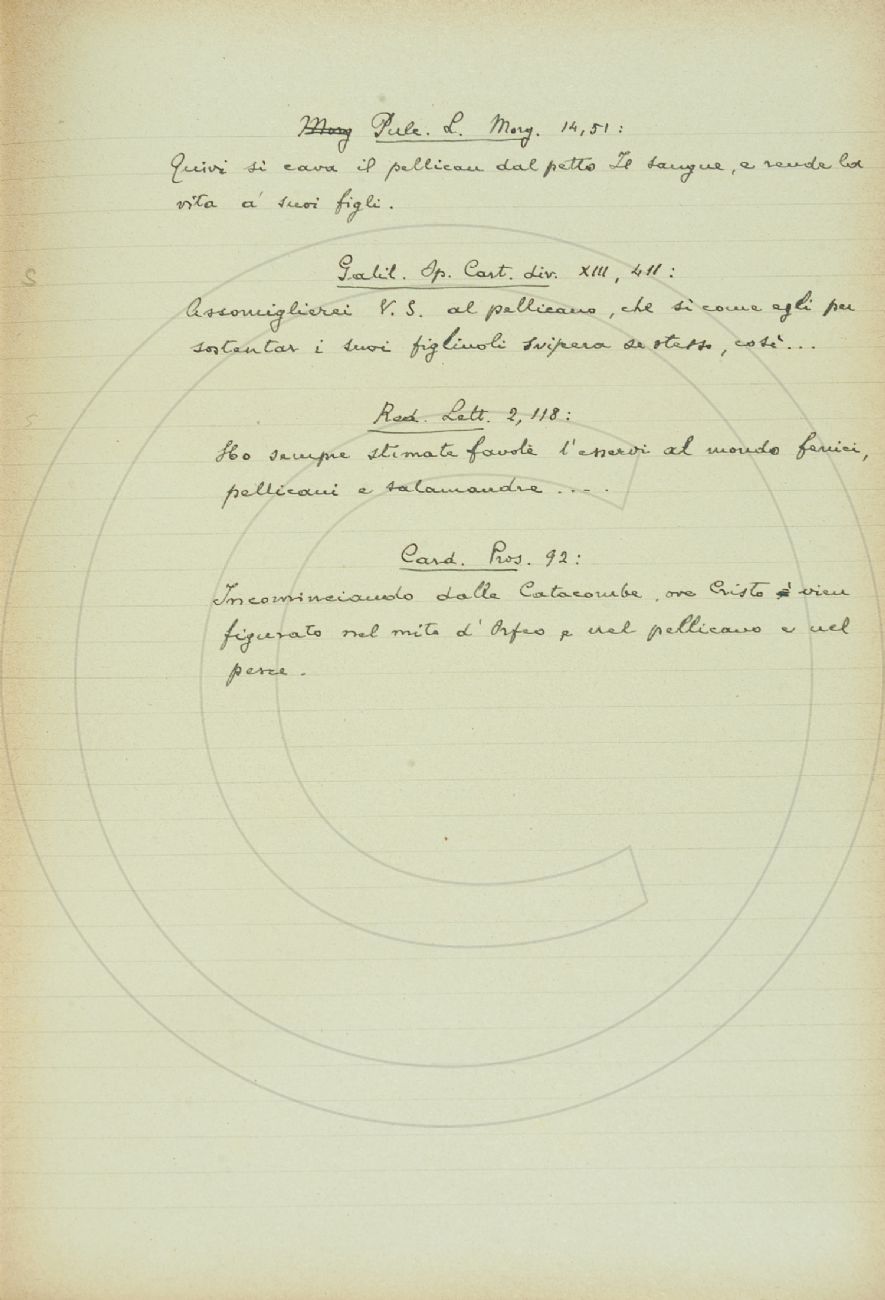 Morg Pulc. L. Morg. 14,51:
Quivi si cava il pellican dal petto Il sangue, e rende la
vita a' suoi figli.
Galil. Op. Cart. div. XIII, 411:
Assomiglierei V. S. al pellicano, che si come egli per
sostentar i suoi figliuoli svipera se stesso, così...
Red. Lett. 2, 118:
Ho sempre stimate favole l'esservi al mondo fenici,
pellicani e salamandre ....
Card. Pros. 92:
Incominciando dalle Catacombe, ove Cristo è vien
figurato nel mito d'Orfeo e nel pellicano e nel
pesce.